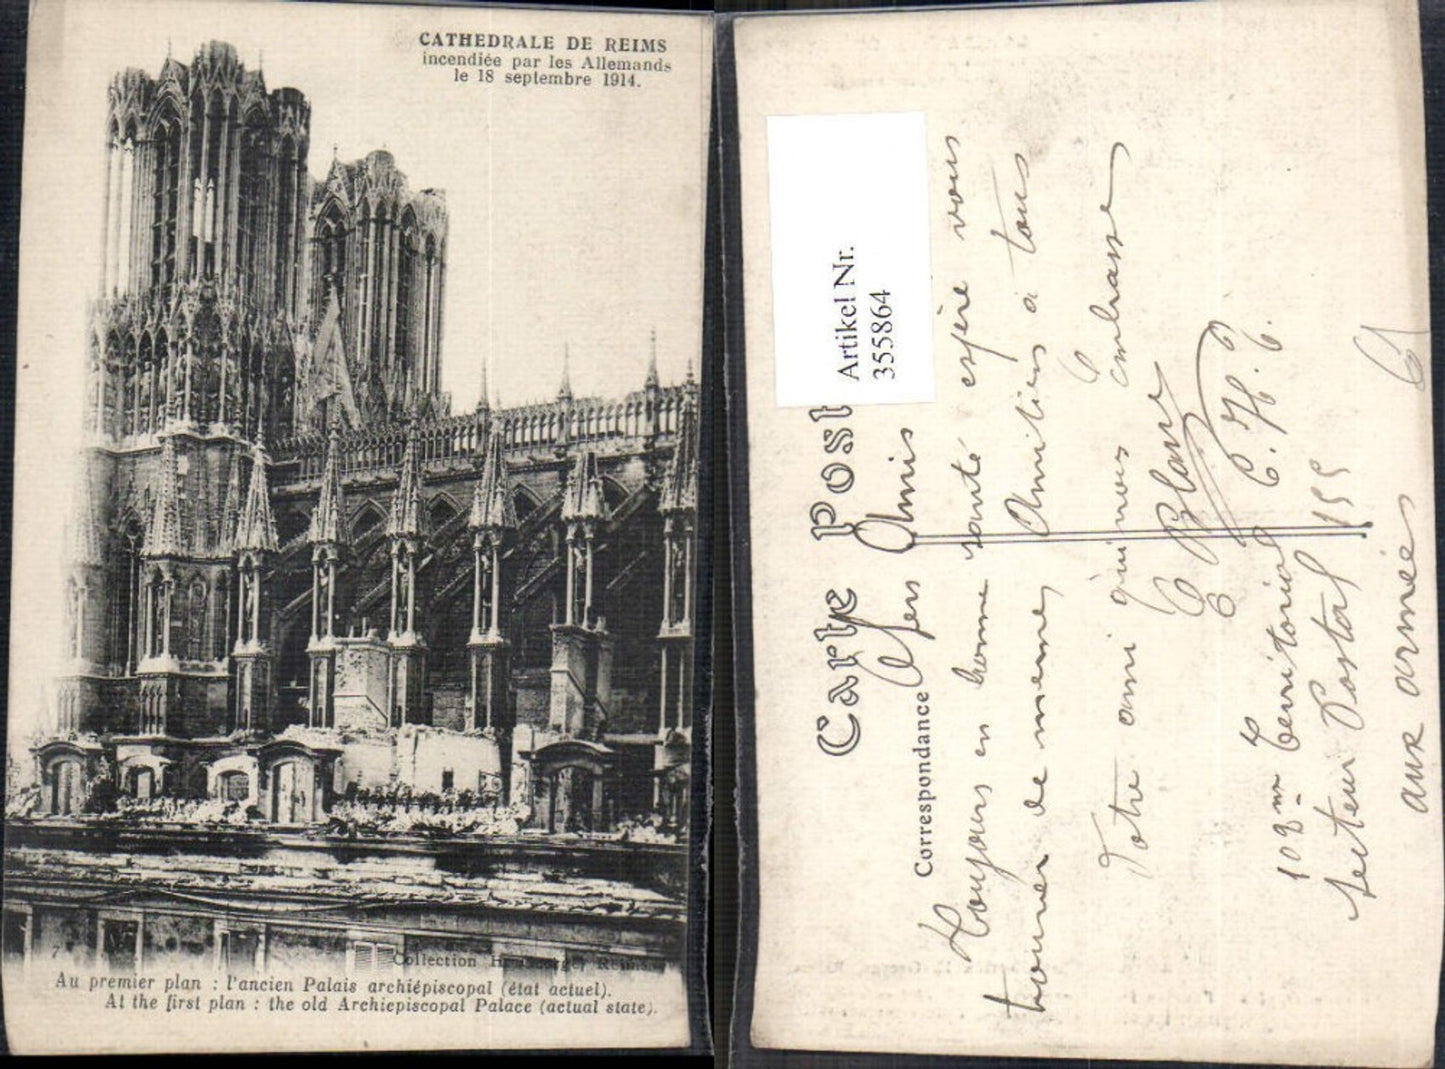 CATHEDRALE DE REIMS
incendiée par les Allemands
le 18 septembre 1914.
7
Collection H. George, Reims.
Au premier plan : l'ancien Palais archiépiscopal (état actuel).
At the first plan : the old Archiepiscopal Palace (actual state).
Artikel Nr.
355864
Carte Post
Correspondance
Chers Amis
Toujours en bonne santé espère vous
trouver de meme, Amitiers a tous
Votre ami qui vous Embrasse
E Blanc
G. H. C.
102me Territorial
Secteur Postal 155
aux armées